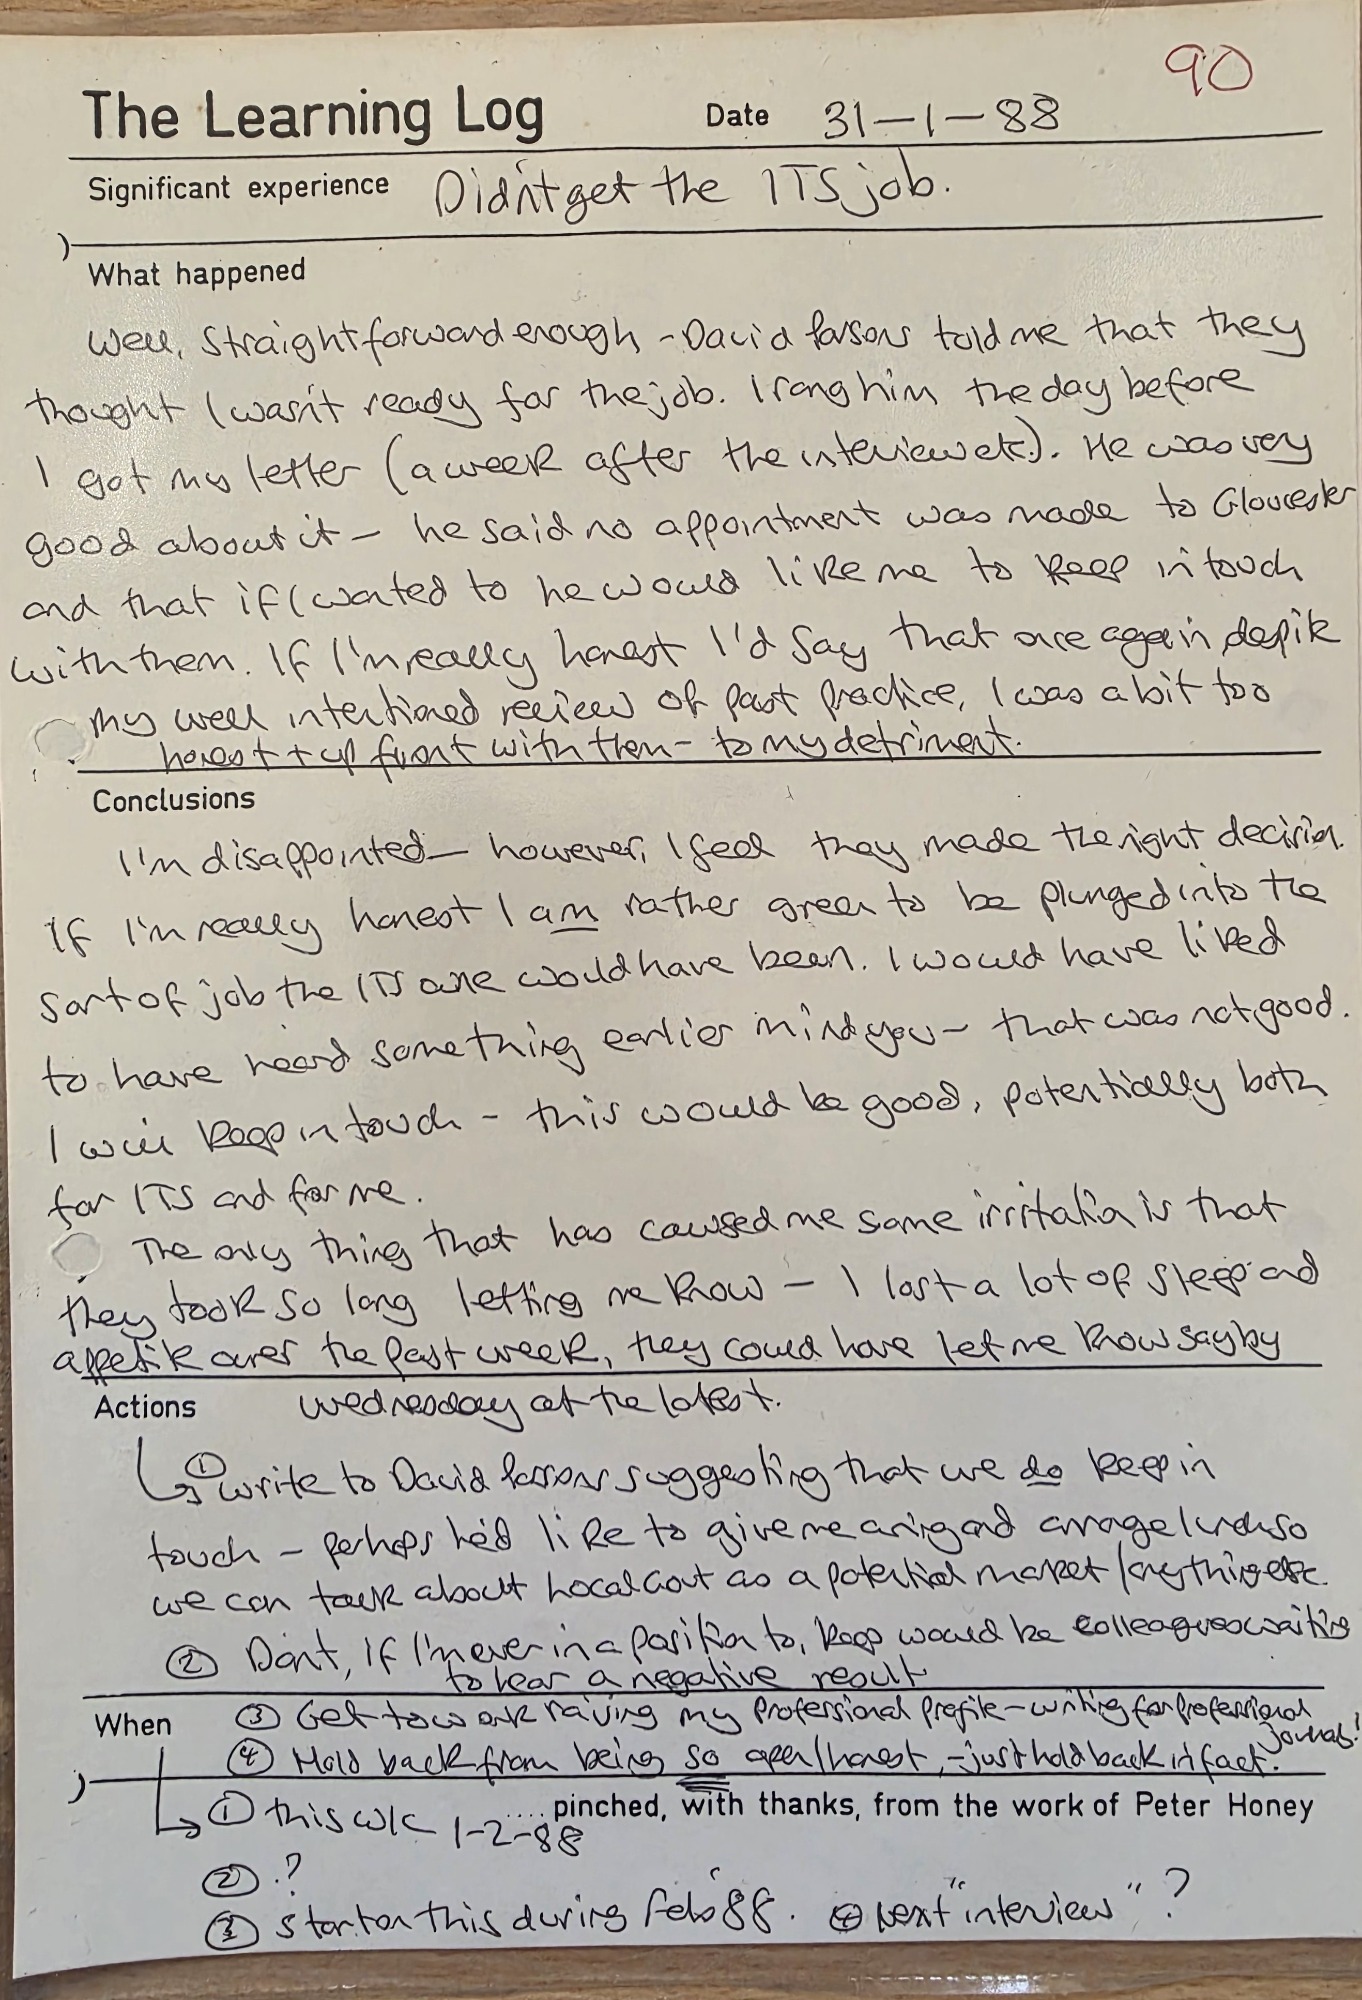 90
The Learning Log Date 31-1-88
Significant experience Didn't get the ITS job.
What happened
Well, straightforward enough - David Parsons told me that they
thought I wasn't ready for the job. I rang him the day before
I got my letter (a week after the interview etc.). He was very
good about it - he said no appointment was made to Gloucester
and that if I wanted to he would like me to keep in touch
with them. If I'm really honest I'd say that once again despite
my well intentioned review of past practice, I was a bit too
honest + up front with them - to my detriment.
Conclusions
I'm disappointed - however, I feel they made the right decision.
If I'm really honest I am rather green to be plunged into the
sort of job the ITS one would have been. I would have liked
to have heard something earlier mind you - that was not good.
I will keep in touch - this would be good, potentially both
for ITS and for me.
The only thing that has caused me some irritation is that
they took so long letting me know - I lost a lot of sleep and
appetite over the past week, they could have let me know say by
Wednesday at the latest.
Actions
① Write to David Parsons suggesting that we do keep in
touch - perhaps he'd like to give me a ring and arrange lunch so
we can talk about Local Govt as a potential market / anything else.
② Don't, if I'm ever in a position to, keep would be colleagues waiting
to hear a negative result
When ③ Get to work raising my professional profile - writing for professional
journals!
④ Hold back from being so open/honest, - just hold back in fact.
① this w/c 1-2-88
.... pinched, with thanks, from the work of Peter Honey
② ?
③ start on this during Feb '88. ④ Next "interview"?